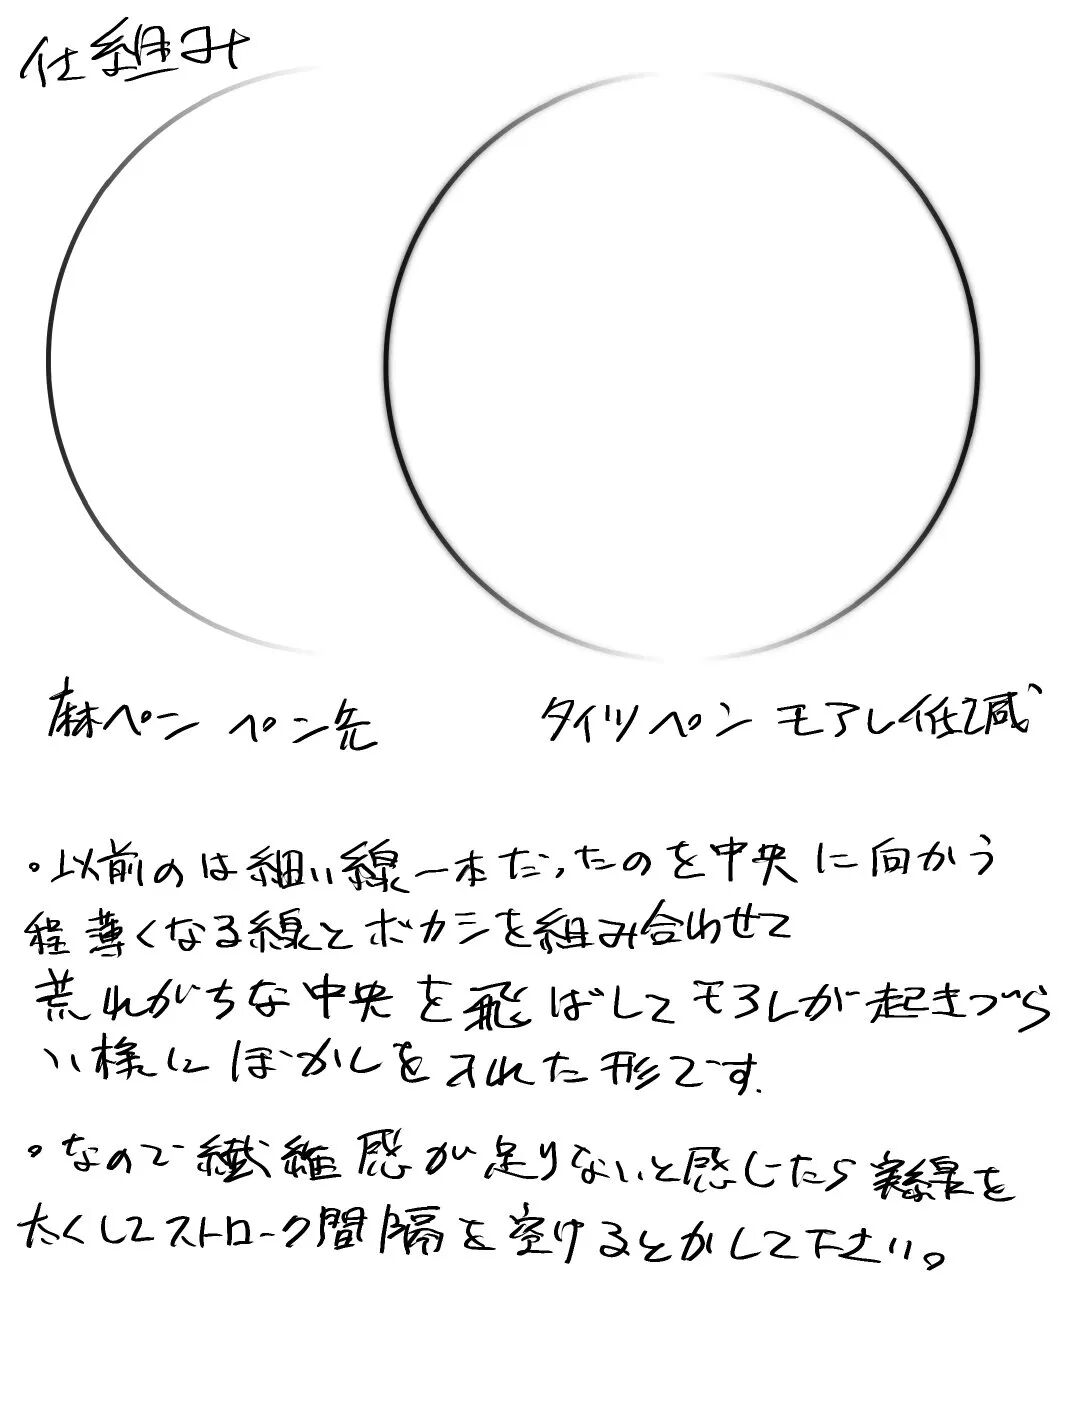 仕組み
麻ペン ペン先
タイツペン モアレ低減
・以前のは細い線一本だったのを中央に向かう
程薄くなる線とボカシを組み合わせて
荒れがちな中央を飛ばしてモアレが起きづら
い様にぼかしを入れた形です.
・なので繊維感が足りないと感じたら実線を
太くしてストローク間隔を空けるとかして下さい。